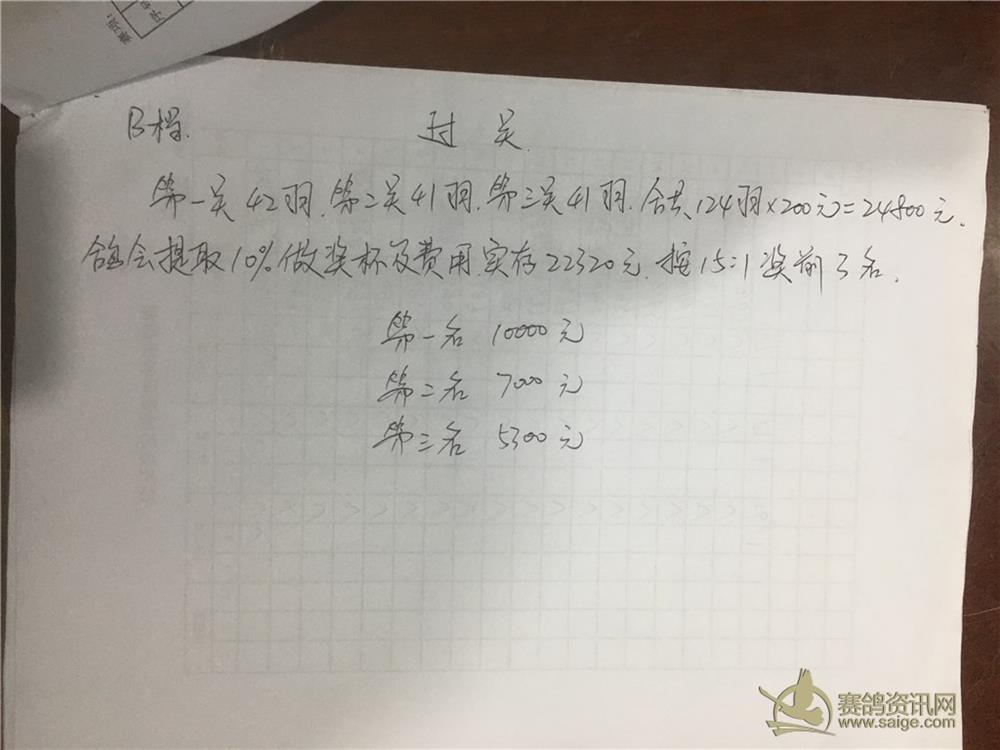 赛项:
序号
B档.
过关
第一关42羽.第二关41羽.第三关41羽.合共124羽×200元=24800元.
鸽会提取10%做奖杯及费用.实存22320元.按15:1奖前3名.
第一名 10000元
第二名 7000元
第三名 5300元
赛鸽资讯网
www.saige.com